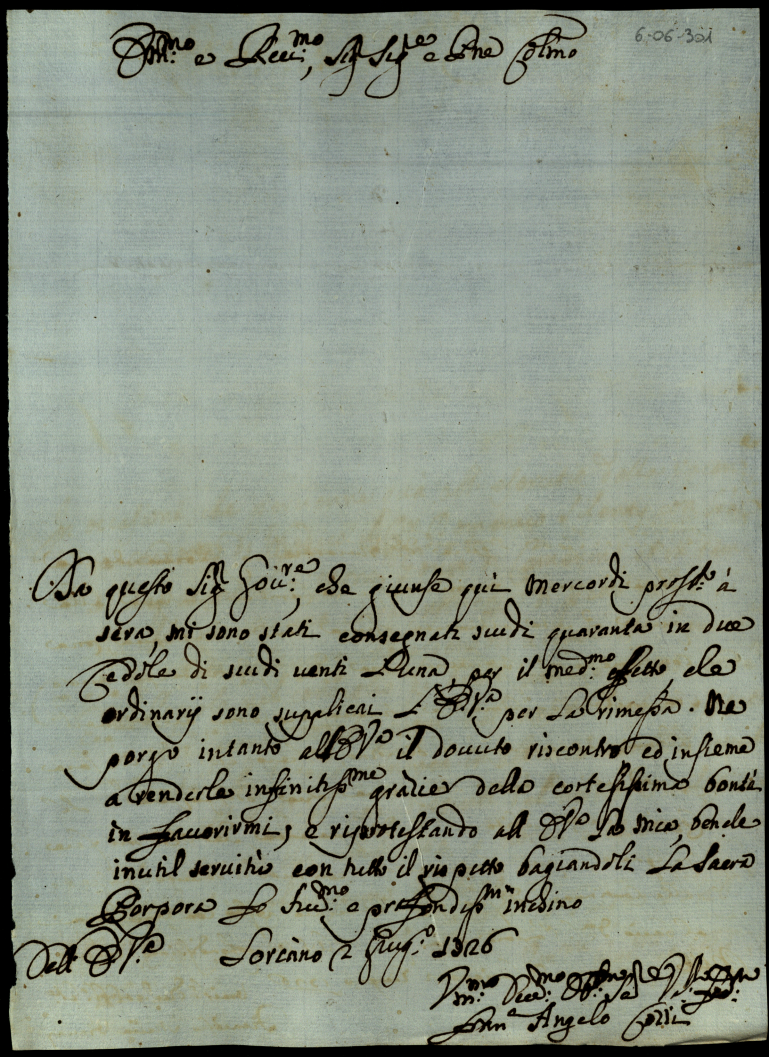 6-06-301
Em.mo e Rev.mo Sig Sig.e e Pne Colmo
Da questo Sig.r Gov.re, che giunse quì Mercordi pross.o à
sera, mi sono stati consegnati scudi quaranta in due
Cedole di scudi venti l'una, per il med.mo effetto, che
ordinarij sono supplicai l'E V.a per la rimessa. Ne
porgo intanto all'E V.a il dovuto riscontro ed insieme
a renderle infinitiss.me gratie della cortesissima bontà
in favorirmi, e riprotestando all'E V.a la mia, benche
inutil servitù con tutto il rispetto bagiandoli la Sacra
Porpora fo hu.mo e profondiss.mo inchino
Dell'E V.a Loreano 2 Giug.o 1726
V.mo
Fran.o Angelo